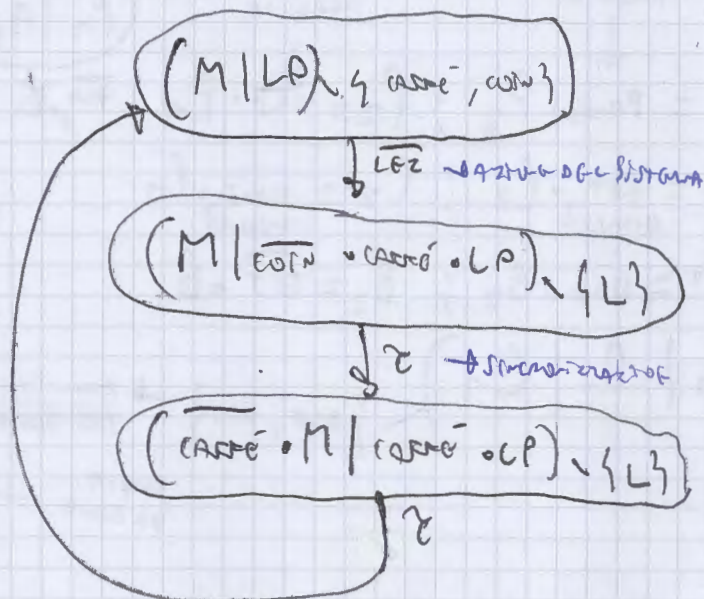 (M | LP) \ { CAFFÉ, COIN}
LEZ → AZIONE DEL SISTEMA
(M | COIN • CAFFÉ • LP) \ {L}
τ → SINCRONIZZAZIONE
(CAFFÉ • M | CAFFÉ • LP) \ {L}
τ